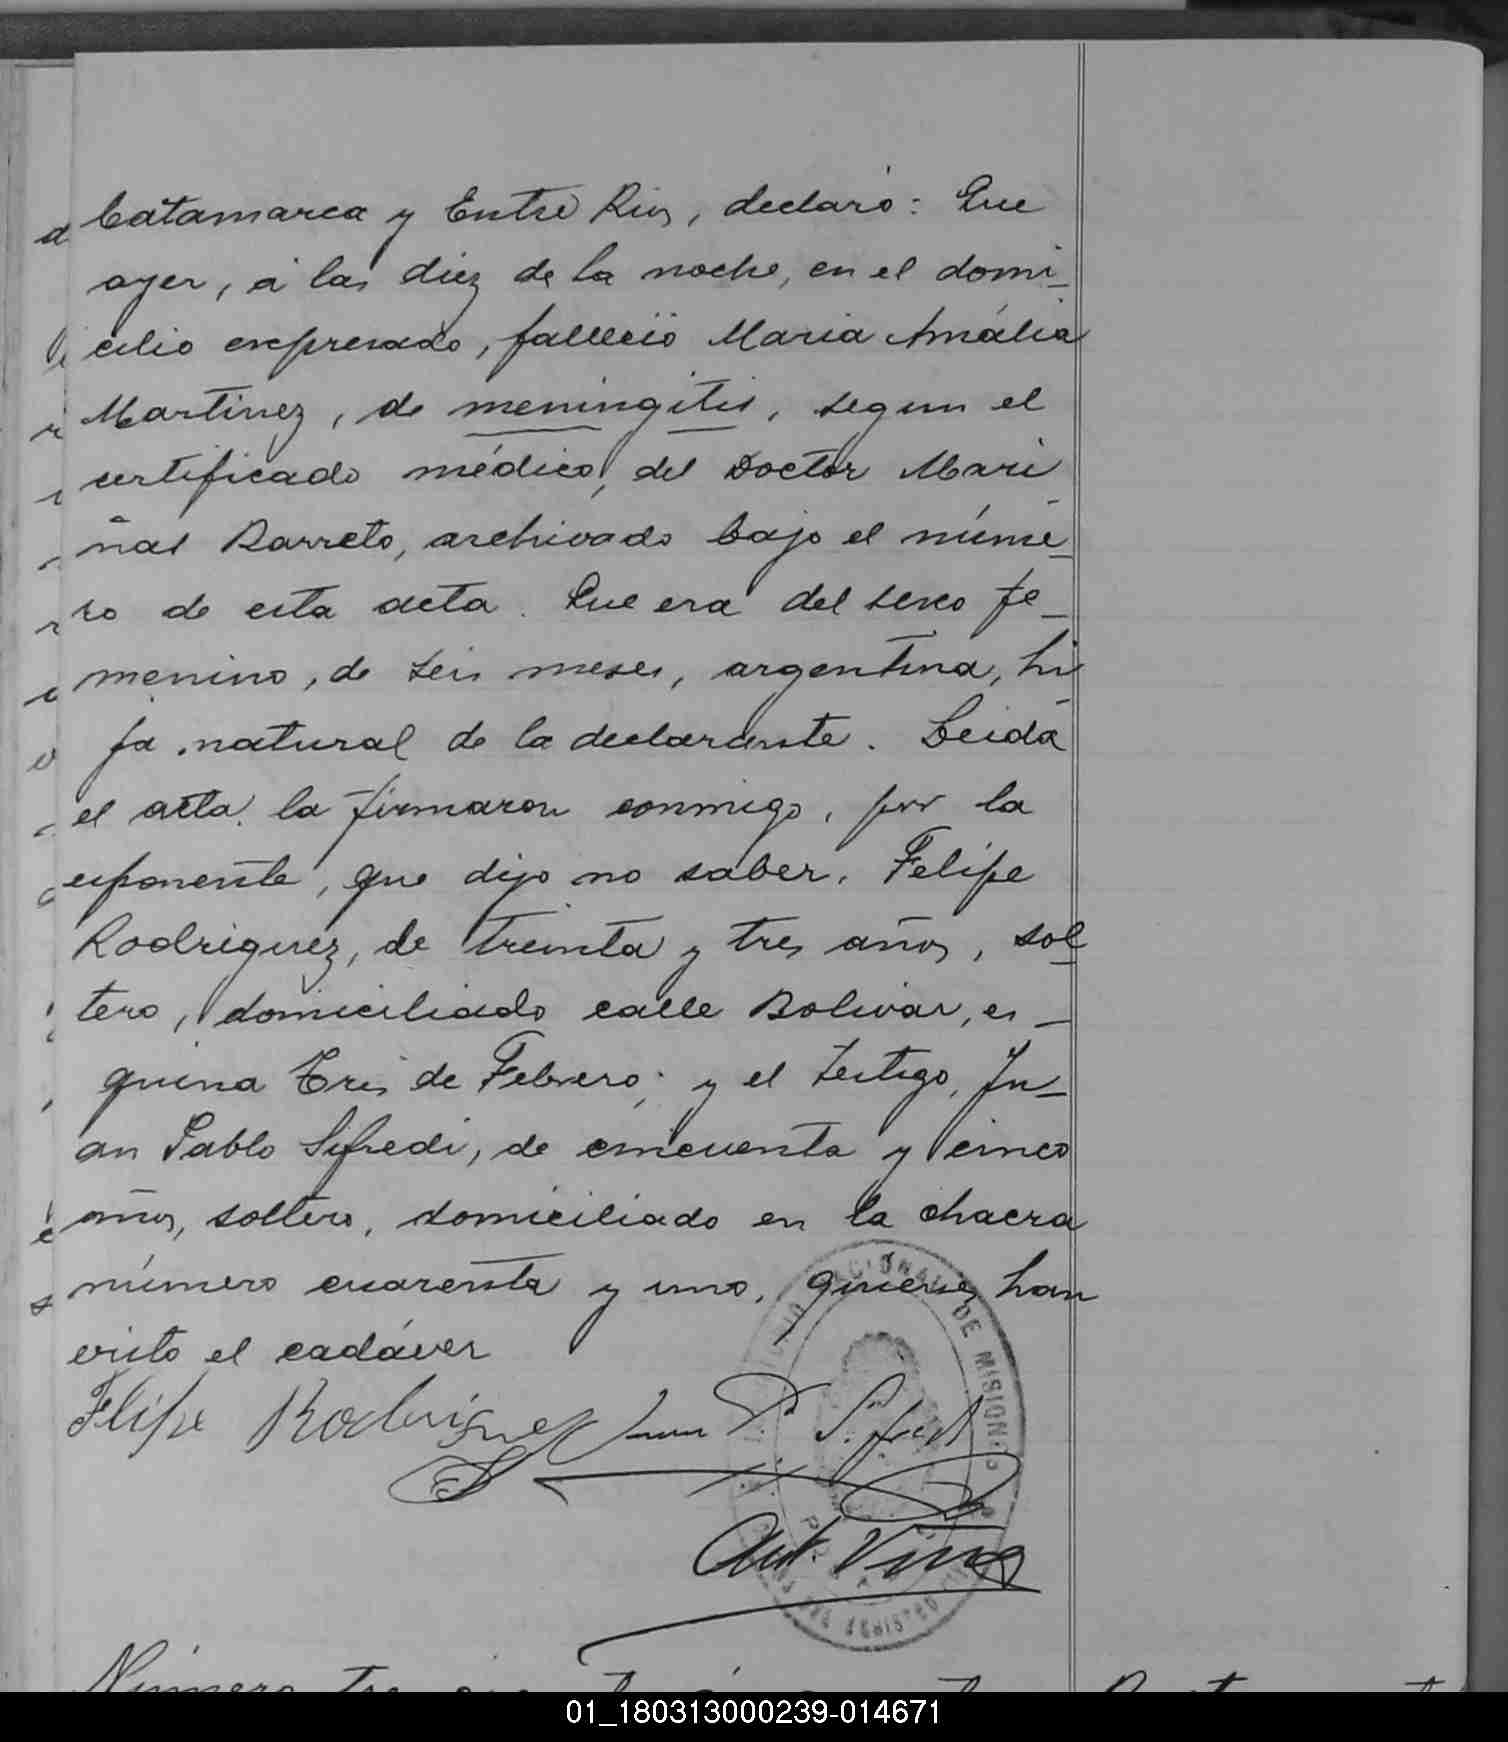 Catamarca y Entre Rios, declaró: Que
ayer, á las diez de la noche, en el domi_
cilio expresado, falleció Maria Amália
Martinez, de meningitis, segun el
certificado médico, del Doctor Mari_
ñas Barreto, archivado bajo el núme_
ro de esta acta. Que era del sexo fe_
menino, de seis meses, argentina, hi_
ja natural de la declarante. Leida
el acta, la firmaron conmigo, por la
exponente, que dijo no saber, Felipe
Rodriguez, de treinta y tres años, sol_
tero, domiciliado calle Bolivar, es_
quina Tres de Febrero; y el testigo, Ju_
an Pablo Sifredi, de cincuenta y cinco
años, soltero, domiciliado en la chacra
número cuarenta y uno, quienes han
visto el cadáver
Felipe Rodriguez Juan P. Sifredi
NACIONAL DE MISIONES
01_180313000239-014671